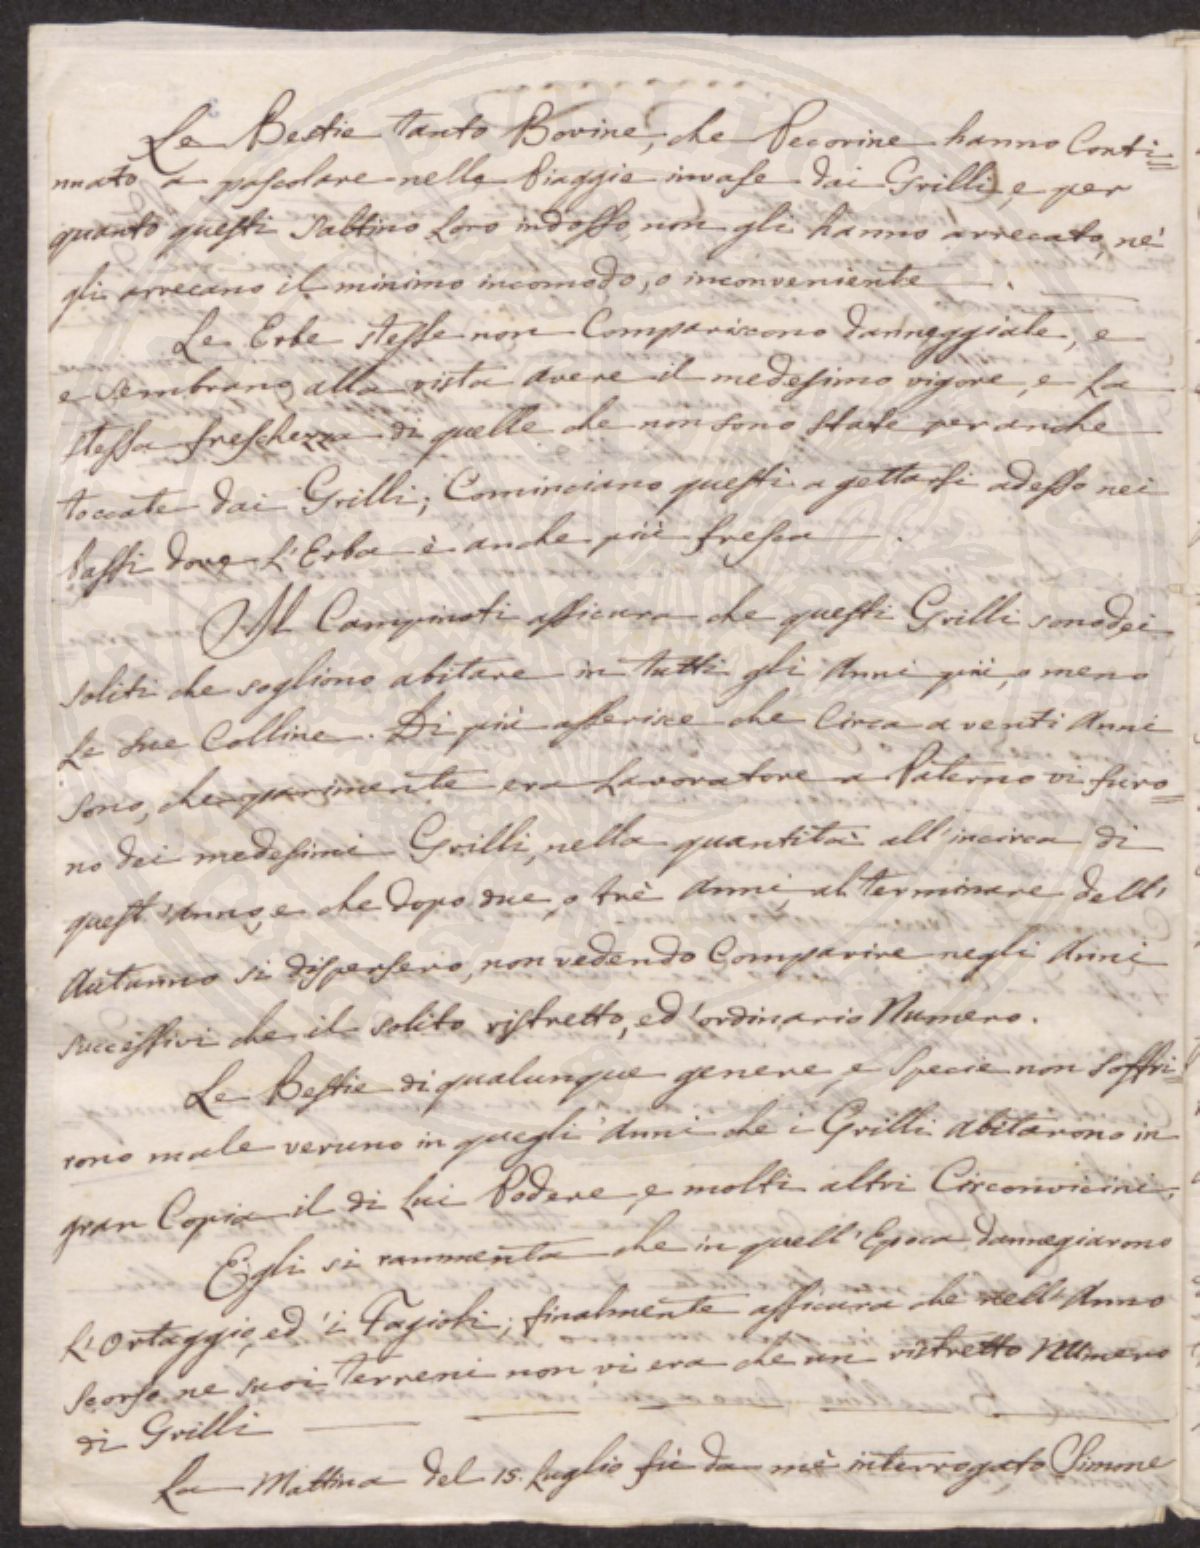 Le Bestie tanto Bovine, che Pecorine hanno Conti=
nuato a pascolare nelle Piaggie invase dai Grilli, e per
quanto questi saltino Loro indosso, non gli hanno arrecato, ne'
gli arrecano il minimo incomodo, o inconveniente.
Le Erbe stesse non Compariscono danneggiate, e
e sembrano alla vista avere il medesimo vigore, e La
stessa freschezza di quelle che non sono state per anche
toccate dai Grilli; Cominciano questi a gettarsi adesso nei
Bassi dove L'Erba è anche più fresca.
Il Campinoti assicura che questi Grilli sono dei
soliti che sogliono abitare in tutti gli Anni più, o meno
Le sue Colline. Di più asserisce che Circa a venti Anni
sono, che parimente era Lavoratore a Paterno vi furo=
no dei medesimi Grilli, nella quantità all'incirca di
quest'anno, e che dopo due, o trè Anni, al terminare dell'
Autunno si dispersero, non vedendo Comparire negli Anni
successivi che il solito ristretto, ed'ordinario Numero.
Le Bestie di qualunque genere, e specie non soffri=
rono male veruno in quegli Anni che i Grilli abitarono in
gran Copia il di Lui Podere, e molti altri Circonvicini.
Egli si rammenta che in quell'Epoca dannegiarono
L'Ortaggio, ed'i Fagioli; finalmente assicura che nell'Anno
scorso ne suoi terreni non vi era che un ristretto Numero
di Grilli
La Mattina del 15. Luglio fù da mè interrogato Simone